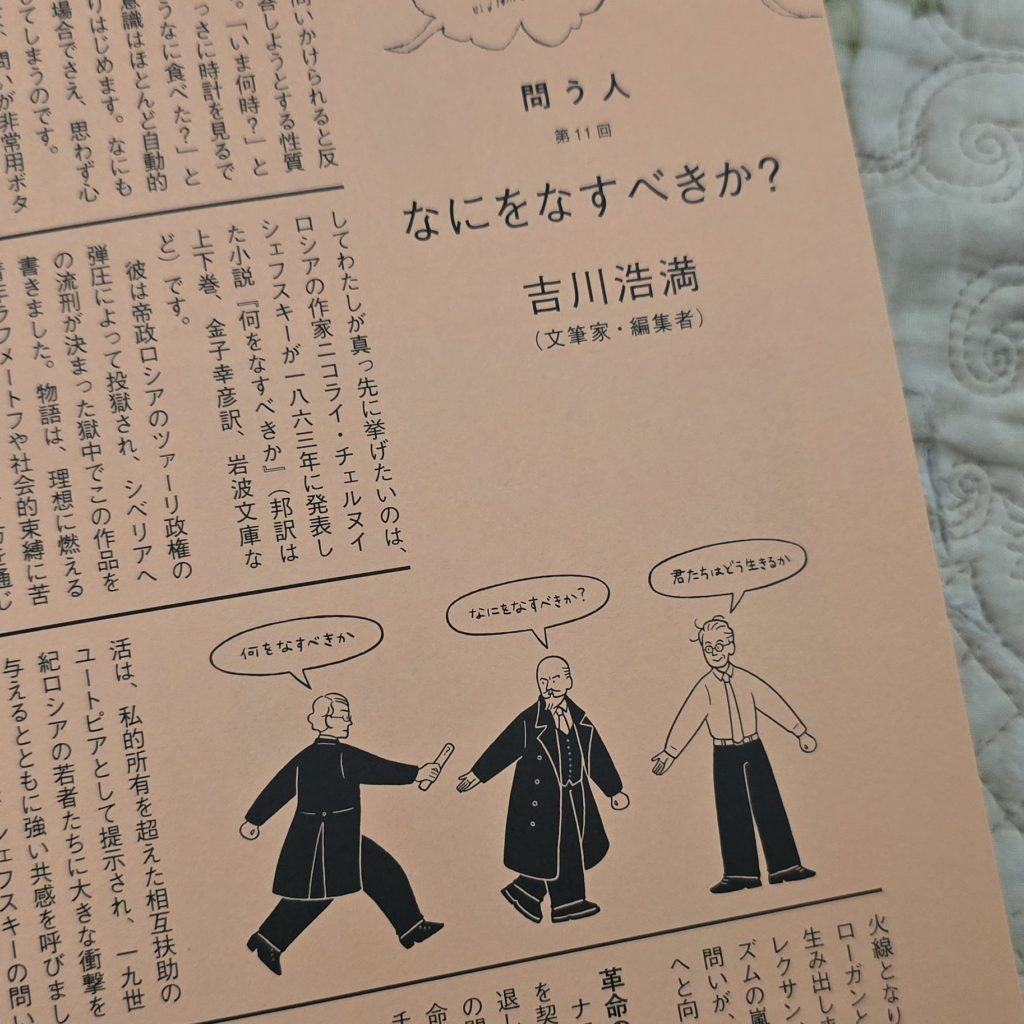 問う人
第11回
なにをなすべきか?
吉川浩満
(文筆家・編集者)
問いかけられると反
答しようとする性質
。「いま何時?」と
っさに時計を見るで
うなに食べた?」と
意識はほとんど自動的
りはじめます。なにも
場合でさえ、思わず心
してしまうのです。
問いが非常用ボタ
してわたしが真っ先に挙げたいのは、
ロシアの作家ニコライ・チェルヌイ
シェフスキーが一八六三年に発表し
た小説『何をなすべきか』(邦訳は
上下巻、金子幸彦訳、岩波文庫な
ど)です。
彼は帝政ロシアのツァーリ政権の
弾圧によって投獄され、シベリアへ
の流刑が決まった獄中でこの作品を
書きました。物語は、理想に燃える
青年ラフメートフや社会的束縛に苦
を通じ
何をなすべきか
なにをなすべきか?
君たちはどう生きるか
活は、私的所有を超えた相互扶助の
ユートピアとして提示され、一九世
紀ロシアの若者たちに大きな衝撃を
与えるとともに強い共感を呼びまし
シェフスキーの問い
火線となり
ローガンと
生み出しま
レクサン
ズムの嵐
問いが、
へと向
革命の
ナ
を契
退し
の問
命
チ